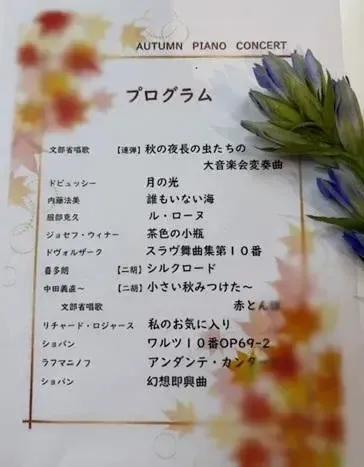 AUTUMN PIANO CONCERT
プログラム
文部省唱歌 【連弾】 秋の夜長の虫たちの
大音楽会変奏曲
ドビュッシー 月の光
内藤法美 誰もいない海
服部克久 ル・ローヌ
ジョセフ・ウィナー 茶色の小瓶
ドヴォルザーク スラヴ舞曲集第10番
喜多朗 【二胡】 シルクロード
中田義直〜 【二胡】 小さい秋みつけた〜
文部省唱歌 赤と
リチャード・ロジャース 私のお気に入り
ショパン ワルツ10番OP69-2
ラフマニノフ アンダンテ・カンタ
ショパン 幻想即興曲